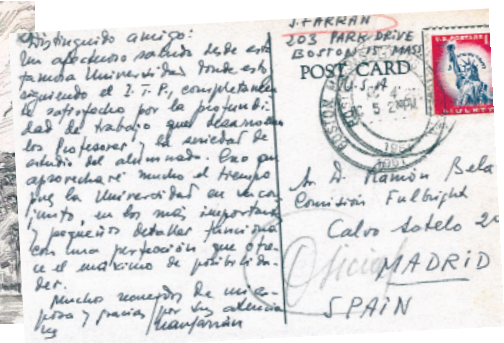 Distinguido amigo:
Un afectuoso saludo desde esta
famosa Universidad donde estoy
siguiendo el I.T.P., completamen
te satisfecho por la profundi
dad de trabajo que desarrollan
los profesores y la seriedad de
estudio del alumnado. Creo que
aprovecharé mucho el tiempo
pues la Universidad en su con
junto, en los más importantes
y pequeños detalles funciona
con una perfección que ofre
ce el máximo de posibilida
des.
Muchos de mi es
posa y gracias por su atencion
J. FARRAN
203 PARK DRIVE
BOSTON 15. MASS
U.S.A
POST CARD
U.S. POSTAGE
LIBERTY
BOSTON
1960
Sr. D. Ramón Bela
Comisión Fulbright
Calvo Sotelo 2
MADRID
SPAIN
Oficial